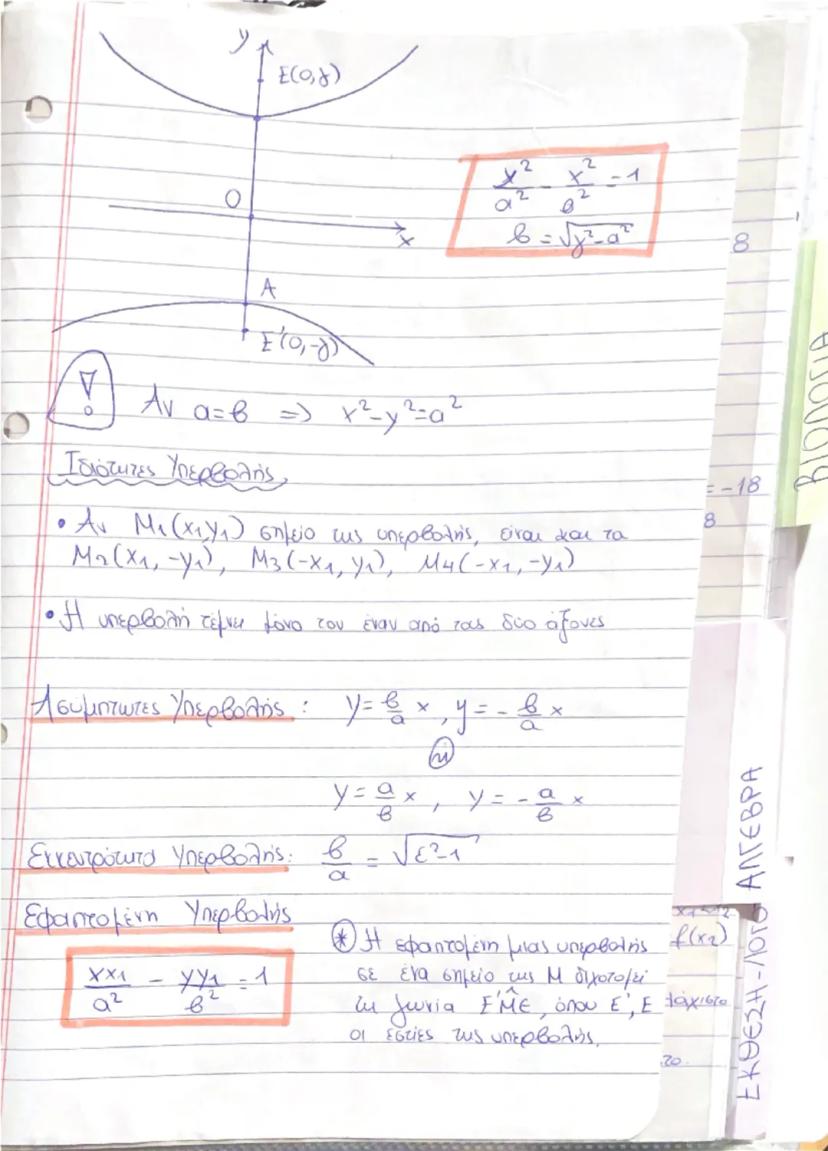 y
E(0,γ)
O
x
A
E'(0,-γ)
x²/a² - x²/β² = 1
β = √γ²-a²
8
!
Αν a=β => x²-y²=a²
Ιδιότητες Υπερβολής
= -18
8
• Αν Μ₁(x₁,y₁) σημείο της υπερβολής, είναι και τα
Μ₂(x₁, -y₁), Μ₃(-x₁, y₁), Μ₄(-x₁, -y₁)
• Η υπερβολή τέμνει μόνο τον έναν από τους δύο άξονες
Ασύμπτωτες Υπερβολής : y= β/a x, y = - β/a x
ή
y = a/β x, y = - a/β x
Εκκεντρότητα Υπερβολής: β/a = √ε²-1
Εφαπτομένη Υπερβολής
xx₁/a² - yy₁/β² = 1
* Η εφαπτομένη μιας υπερβολής
σε ένα σημείο της Μ διχοτομεί
τη γωνία Ε'Μ̂Ε, όπου Ε', Ε
οι εστίες της υπερβολής.
f(x₂)
ΒΙΟΛΟΓΙΑ
ΑΛΓΕΒΡΑ
ΕΚΘΕΣΗ-ΛΟΓΟ